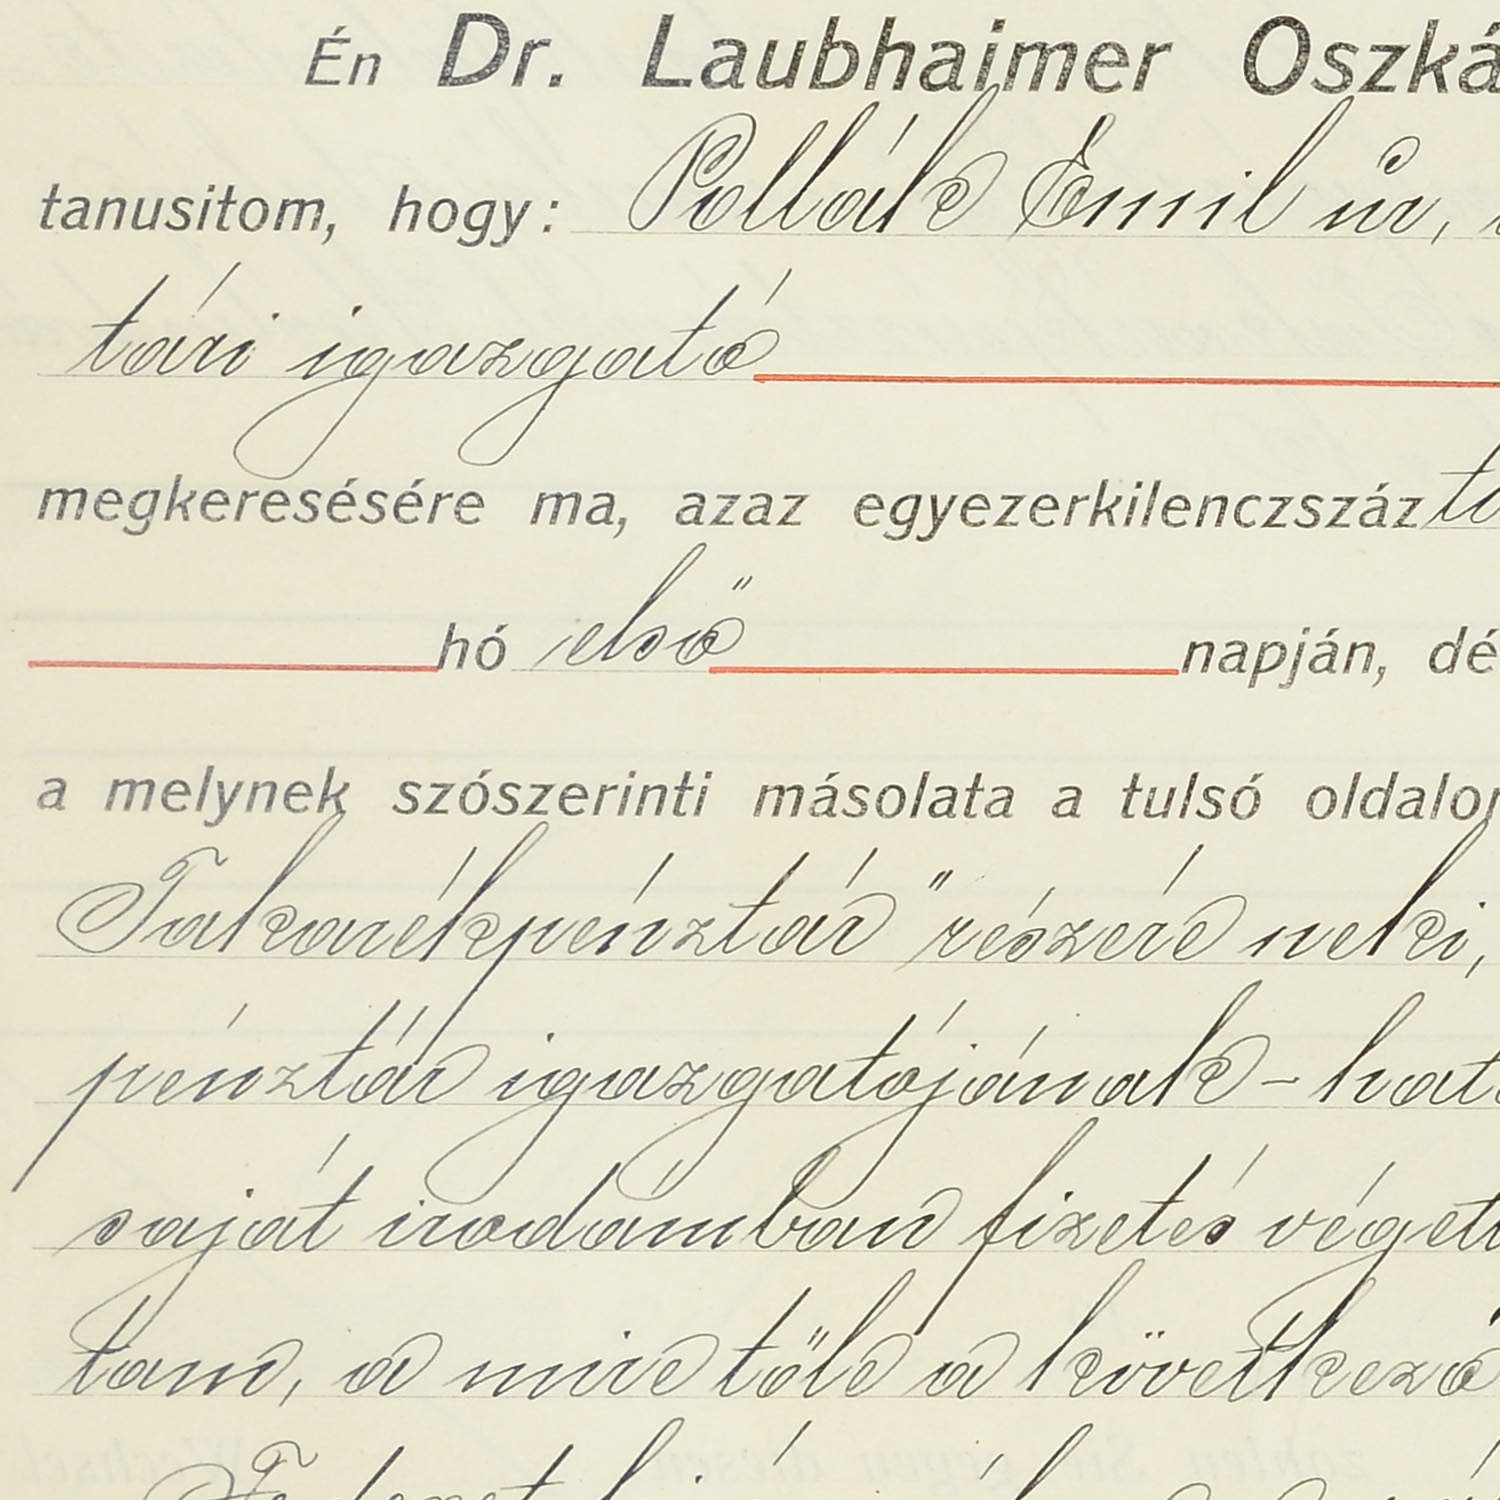 Én Dr. Laubhaimer Oszká
tanusitom, hogy: Pollák Emil úr,
tári igazgató
megkeresésére ma, azaz egyezerkilenczszáz ti
hó első napján, dé
a melynek szószerinti másolata a tulsó oldalon
Takarékpénztár" részére neki,
pénztár igazgatójának – hat
saját irodámban fizetés végett
tam, a mire tőle a következő